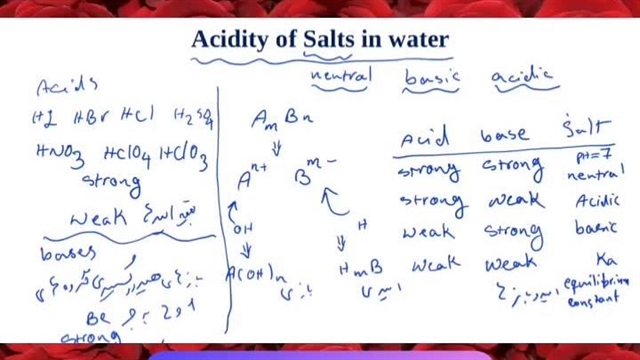 Acidity of Salts in water
neutral basic acidic
Acids
HI HBr HCl H2SO4
HNO3 HClO4 HClO3
strong
weak
bases
Be 2 1
strong
AmBn
⇓
A^n+ B^m-
OH H
⇓ ⇓
A(OH)n HmB
Acid base Salt
strong strong pH=7 neutral
strong weak Acidic
weak strong basic
weak weak Ka
equilibrium
constant